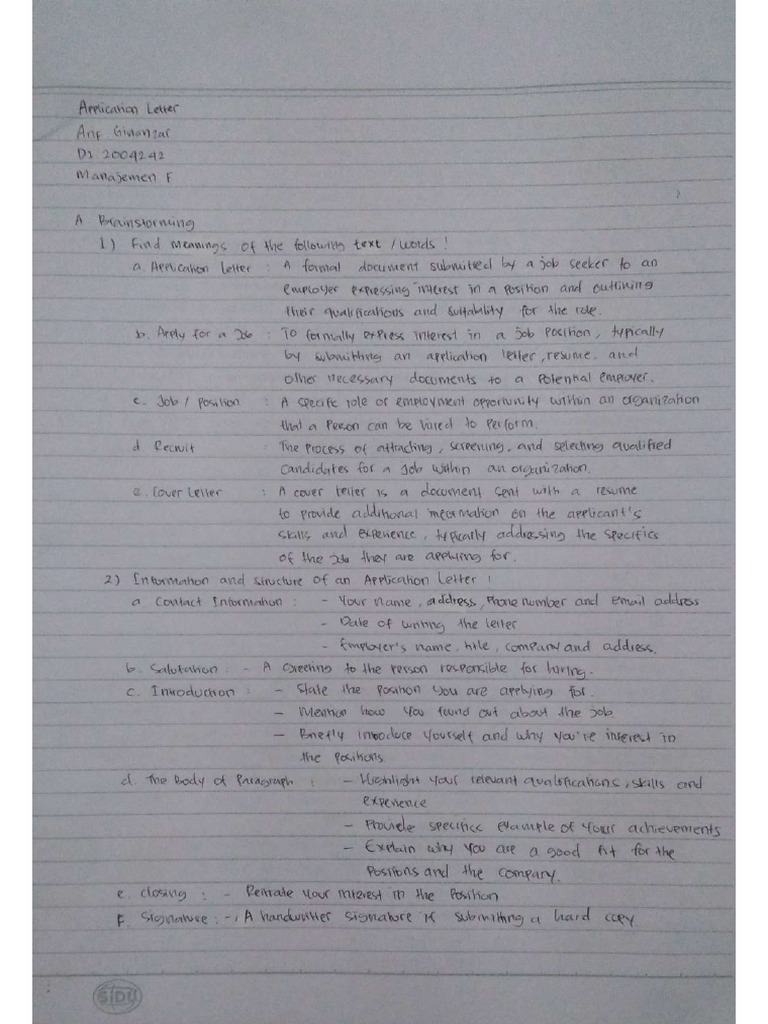 Application Letter
Arif Ginanzar
D1 2004242
Manajemen F
A Brainstorming
1) Find meanings of the following text / words !
a. Application Letter : A formal document submitted by a job seeker to an
employer expressing interest in a position and outlining
their qualifications and suitability for the role.
b. Apply for a Job : To formally express interest in a job position, typically
by submitting an application letter, resume, and
other necessary documents to a potential employer.
c. Job / position : A specific role or employment opportunity within an organization
that a person can be hired to perform.
d Recruit : The process of attracting, screening, and selecting qualified
candidates for a job within an organization.
e. Cover Letter : A cover letter is a document sent with a resume
to provide additional information on the applicant's
skills and experience, typically addressing the specifics
of the job they are applying for.
2) Information and structure of an Application Letter !
a Contact Information : - Your name, address, phone number and email address
- Date of writing the letter
- Employer's name, title, company and address.
b. Salutation : - A Greeting to the person responsible for hiring.
c. Introduction : - State the position you are applying for.
- Mention how you found out about the job
- Briefly introduce yourself and why you're interest in
the positions
d. The Body of Paragraph : - Highlight your relevant qualifications, skills and
experience
- Provide specifics example of your achievements
- Explain why you are a good fit for the
positions and the company.
e. closing : - Reitrate your interest in the position
F. Signature : - A handwritter signature if submitting a hard copy
SIDU